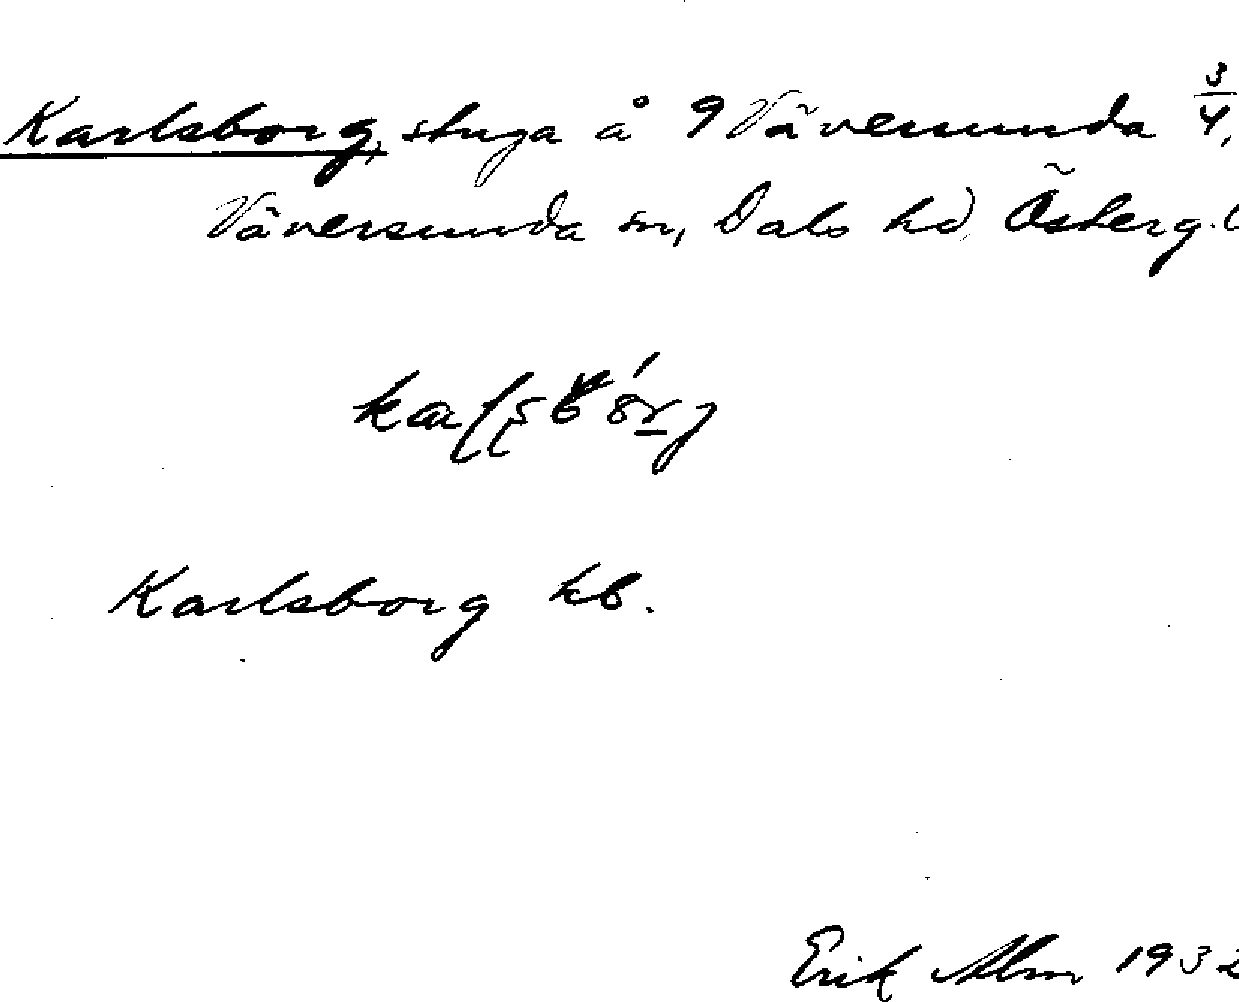 Karlsborg, stuga å 9 Väversunda 3/4,
Väversunda sn, Dals hd, Österg.
Karlsborg kb.
Erik Alm 1932